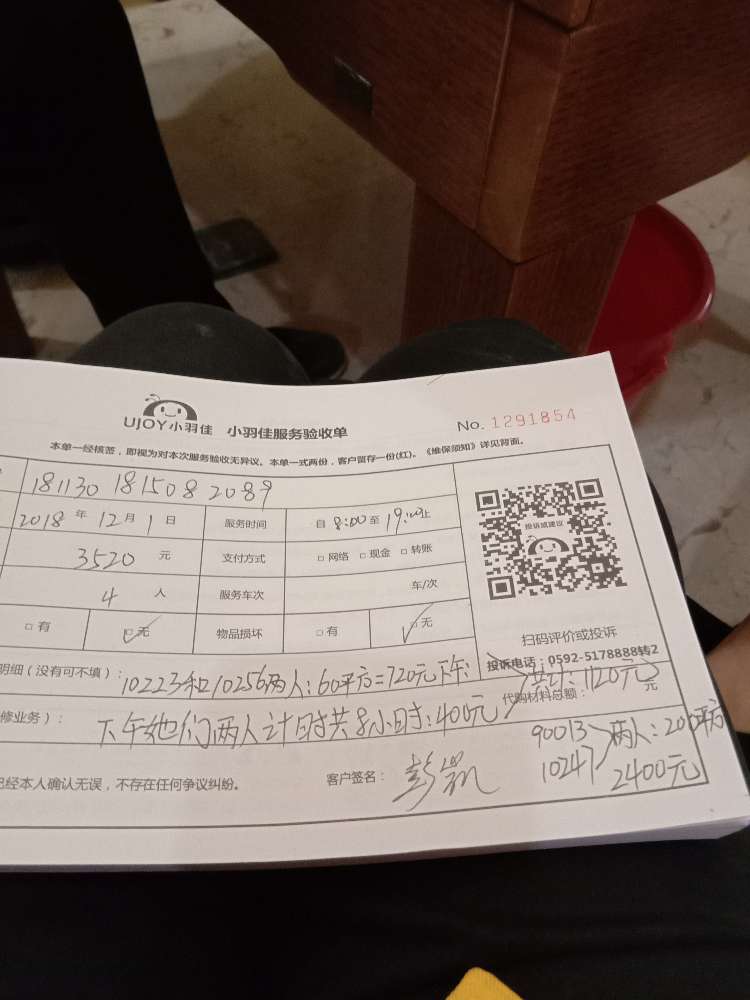 UJOY小羽佳 小羽佳服务验收单 No. 1291854
本单一经核签，即视为对本次服务验收无异议。本单一式两份，客户留存一份(红)。《维保须知》详见背面。
181130 181508 2089
2018 年 12 月 1 日 服务时间 自 8:00 至 19:00 止
3520 元 支付方式 □ 网络 □ 现金 □ 转账
4 人 服务车次 车/次
□ 有 □ 无 物品损坏 □ 有 □ 无
投诉或建议
扫码评价或投诉
投诉电话：0592-5178888转2
明细（没有可不填）： 10223和10256两人：60平方=720元下午：
共计：1120元
代购材料总额： 元
修业务）： 下午她们两人计时共8小时：400元
90013
10247 两人：200平方
2400元
已经本人确认无误，不存在任何争议纠纷。 客户签名： 彭凯